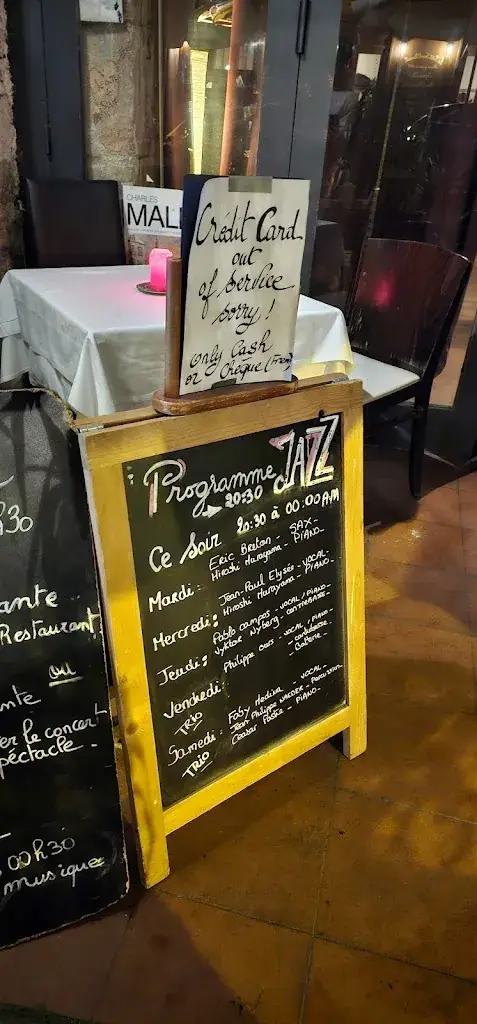 CHARLES
MALI
Crédit Card
out
of service
sorry!
Only Cash
or chèque
Programme JAZZ
20:30
Ce Soir 20:30 à 00:00 AM
Mardi: Eric Breton - SAX -
Hiroshi Murayama - PIANO -
Mercredi: Jean-Paul Elysée - VOCAL -
Hiroshi Murayama - PIANO -
Jeudi: Pablo campos - VOCAL / PIANO -
Vyktor Nyberg - CONTREBASSE -
Vendredi: Philippe - VOCAL / PIANO -
TRIO
Batterie -
Samedi: Faby Medina - VOCAL -
TRIO Jean-Philippe - Percussion -
Cesar - PIANO -
h30
ante
Restaurant
ou
nte
er le concert
péctacle -
00h30
musique